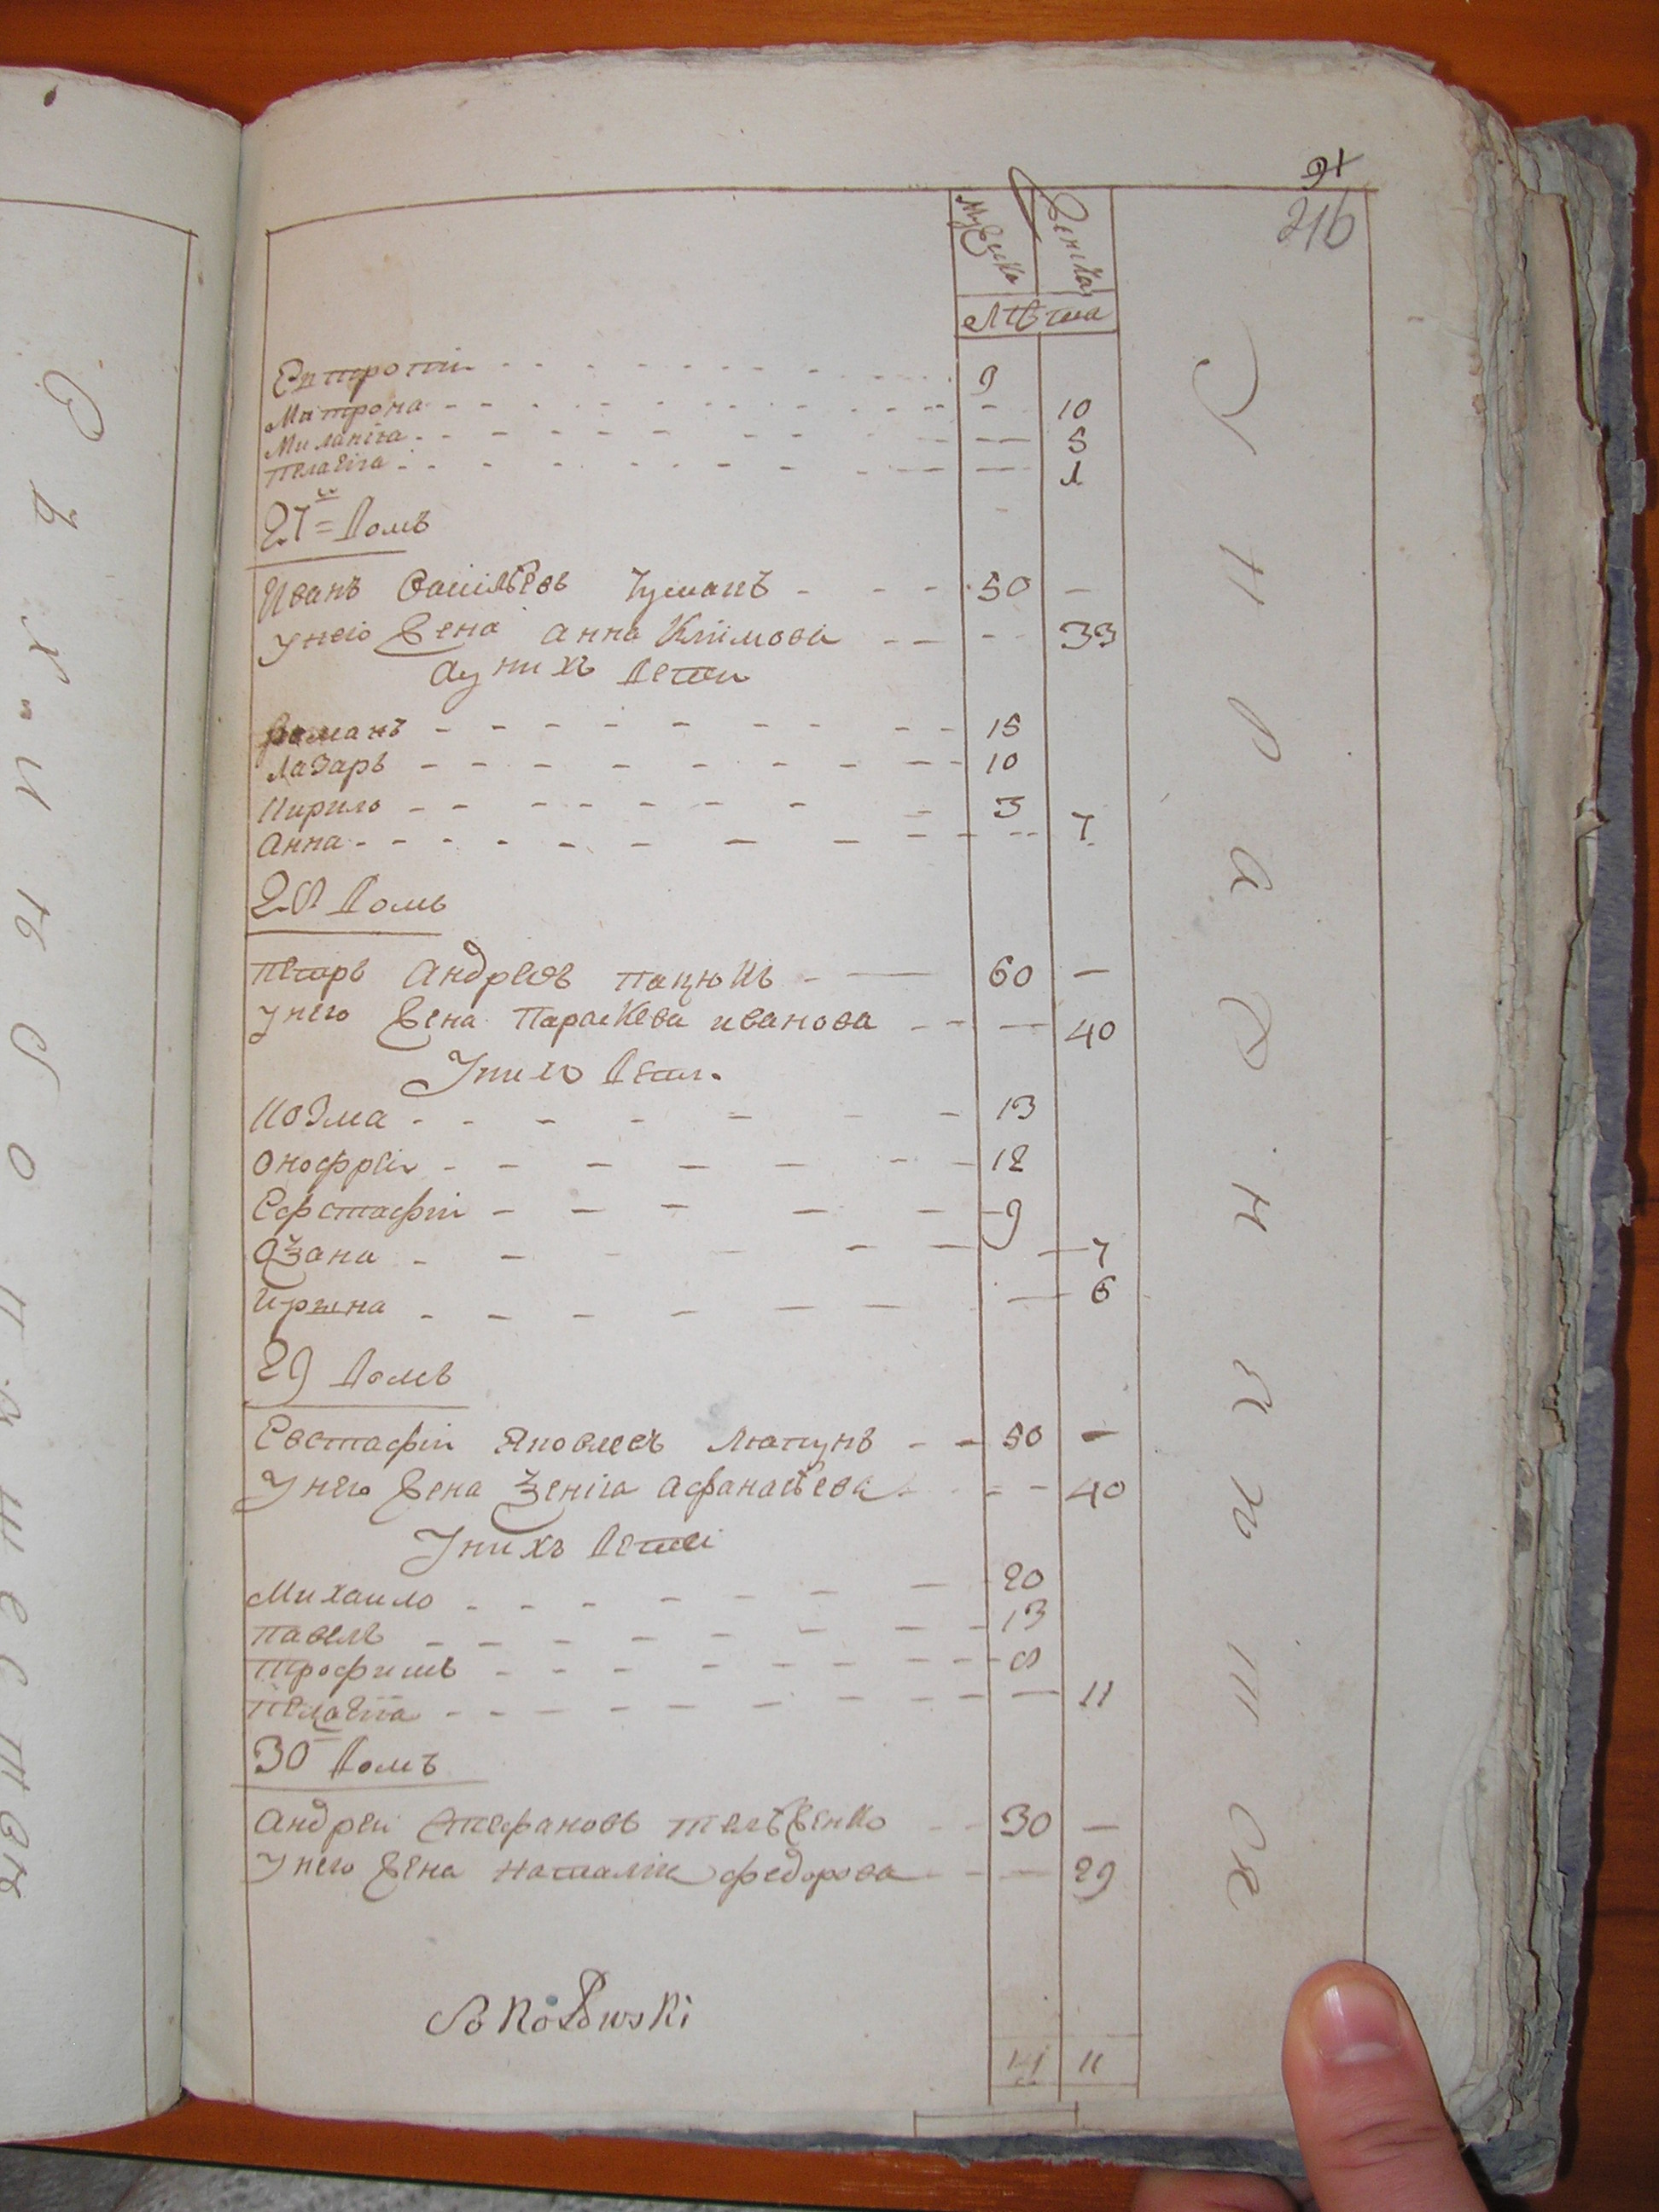 91
216
Мужска Женска
Лѣта
Евтропій 9
Матрона 10
Миланіа 5
Пелагіа 1
27 = й Домъ
Иванъ Василѣевъ Чуманъ 50 —
Унего жена анна Клімова 33
аунихъ Дети
Романъ 15
Лазаръ 10
Кирило 3
Анна 7
28 Домъ
Петръ Андреевъ Пацюкъ 60 —
Унего жена Параскева иванова 40
Унихъ Дети
Козма 13
Онофрій 12
Ефстафій 9
Озана 7
Ирина 6
29 Домъ
Евстафій Яковлевъ Ляпунъ 50 —
Унего жена Зеніа Афанасѣева 40
Унихъ Дети
Михаило 20
Павелъ 13
Трофимъ 8
Пелагіа 11
30 Домъ
Андрей Стефановъ Телѣженко 30 —
Унего жена Наталіа федорова 29
Sokołowski
14 11